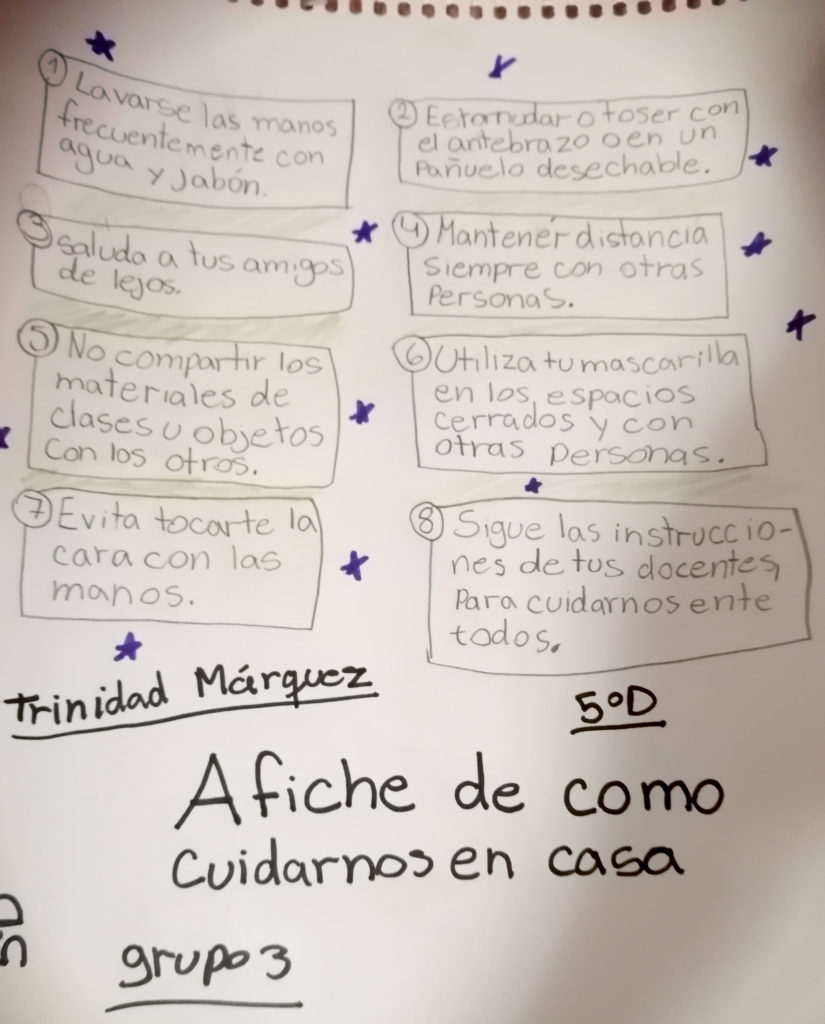 1 Lavarse las manos
frecuentemente con
agua y Jabón.
2 Estornudar o toser con
el antebrazo o en un
Pañuelo desechable.
3 saluda a tus amigos
de lejos.
4 Mantener distancia
siempre con otras
Personas.
5 No compartir los
materiales de
clases u objetos
con los otros.
6 Utiliza tu mascarilla
en los espacios
cerrados y con
otras personas.
7 Evita tocarte la
cara con las
manos.
8 Sigue las instruccio-
nes de tus docentes,
Para cuidarnos ente
todos.
Trinidad Márquez
5°D
Afiche de como
Cuidarnos en casa
grupo 3